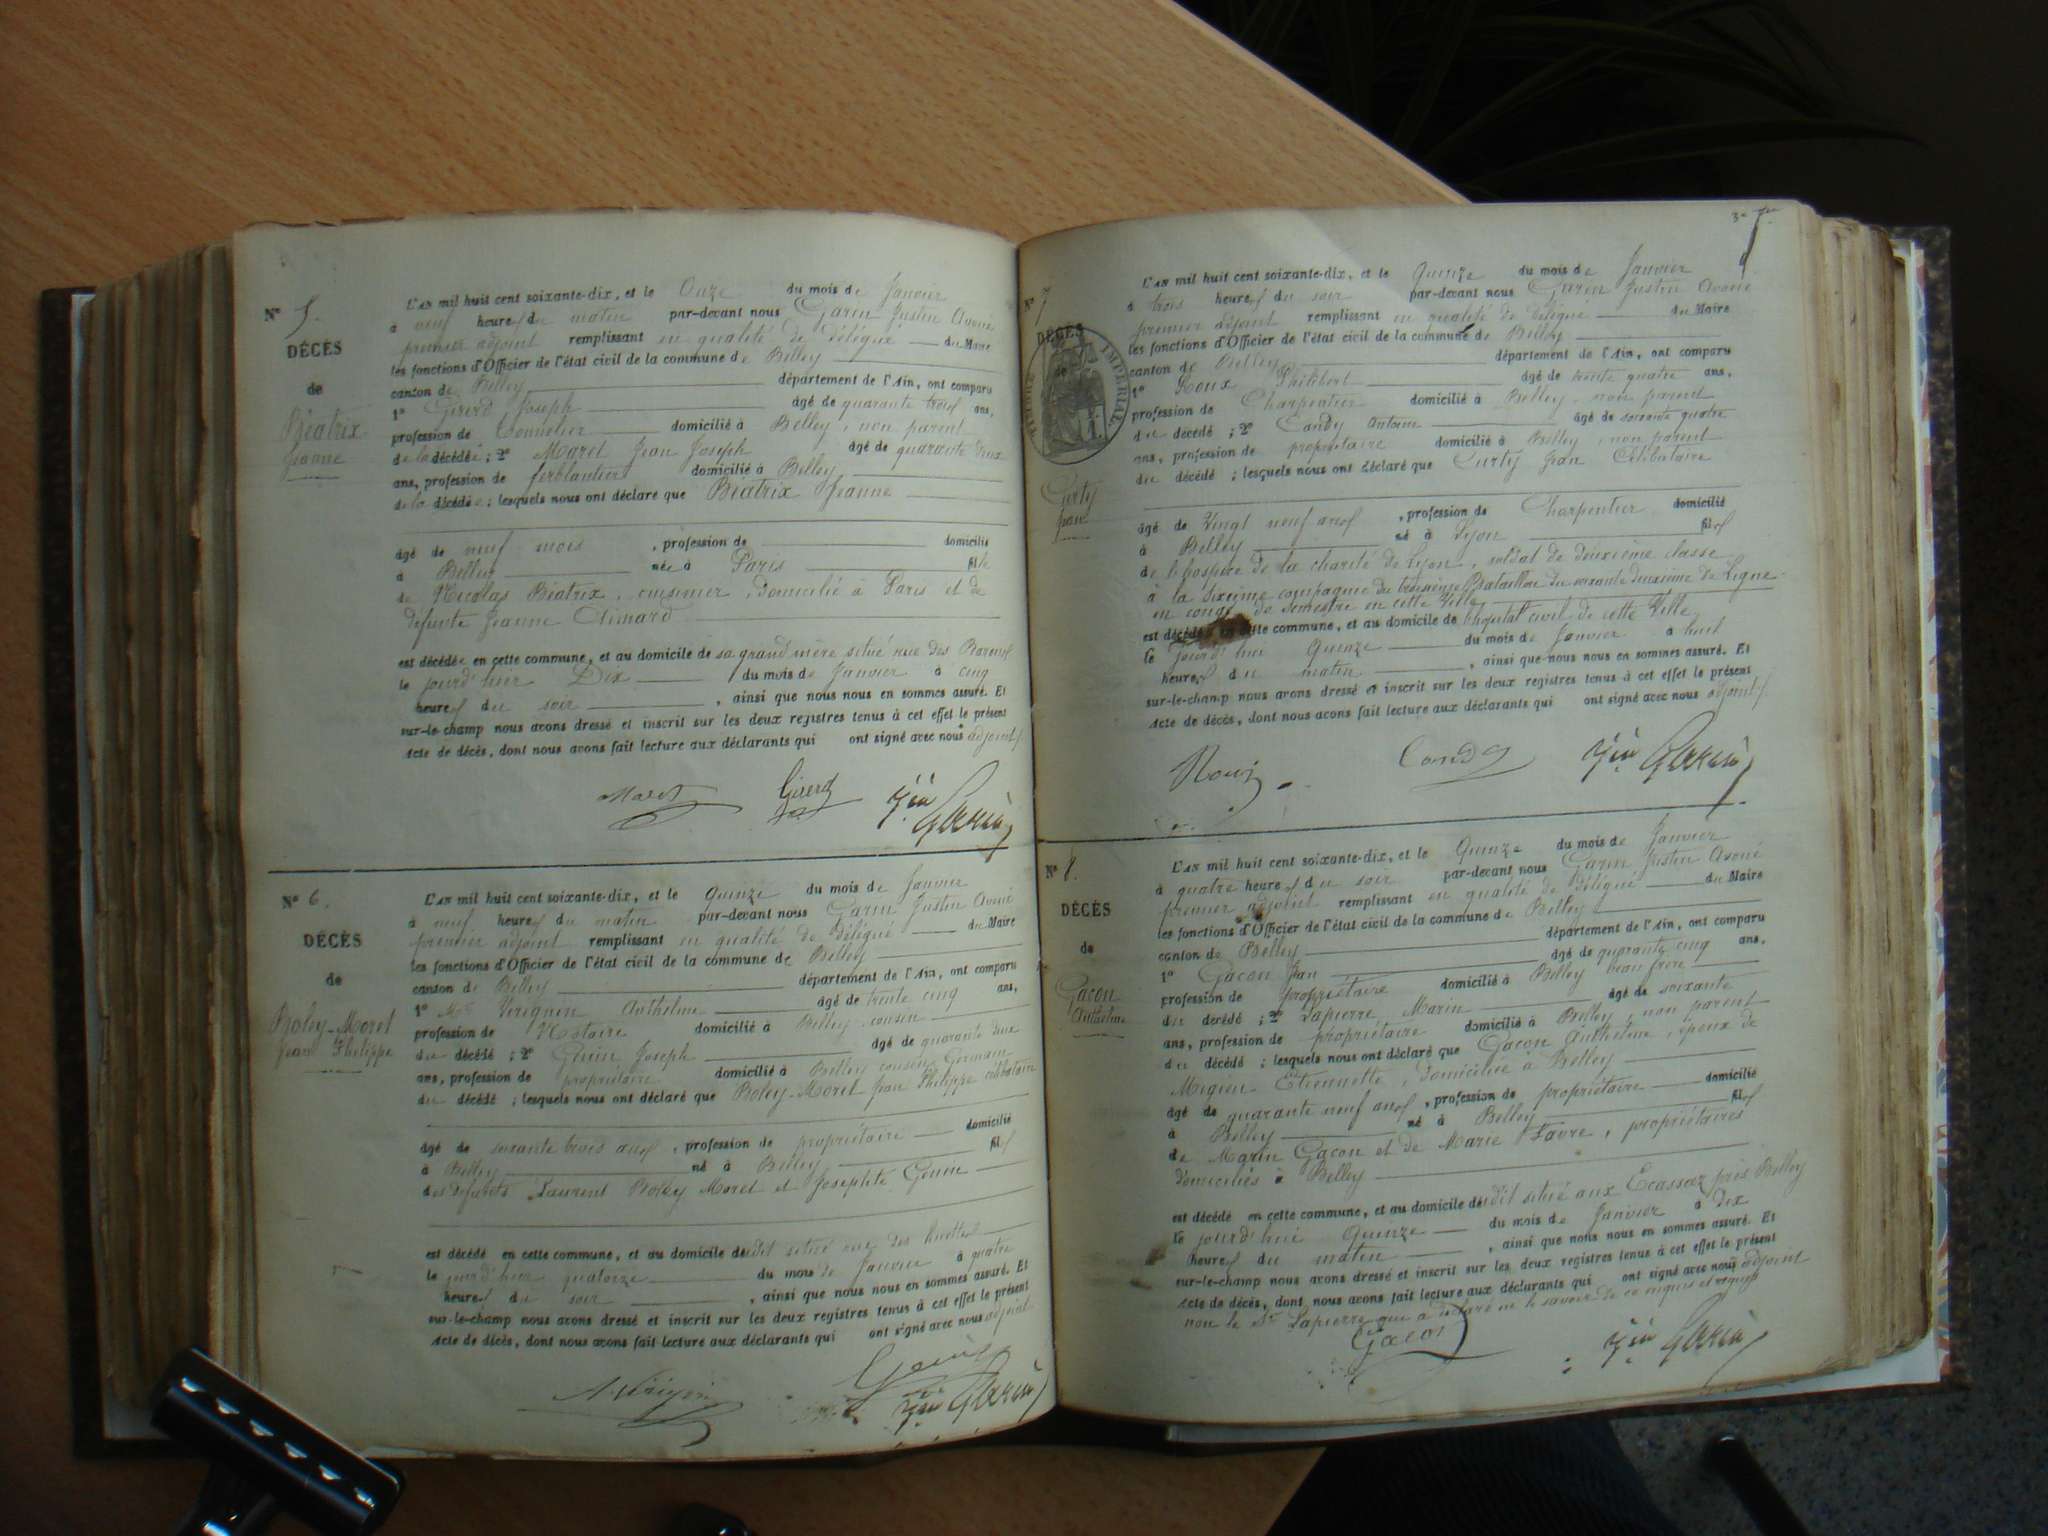 Nº 5.
DÉCÈS
de
Béatrix
Jeanne
L'AN mil huit cent soixante-dix, et le Onze du mois de Janvier
à neuf heures du matin par-devant nous Garin Justin Avoué
premier adjoint remplissant en qualité de délégué du Maire
les fonctions d'Officier de l'état civil de la commune de Belley
canton de Belley département de l'Ain, ont comparu
1º Girerd Joseph âgé de quarante trois ans,
profession de Tonnelier domicilié à Belley, non parent
de la décédée ; 2º Maret Jean Joseph âgé de quarante deux
ans, profession de ferblantier domicilié à Belley
de la décédée ; lesquels nous ont déclaré que Béatrix Jeanne
âgé de neuf mois , profession de domicilié
à Belley née à Paris fille
de Nicolas Béatrix, cuisinier, domicilié à Paris et de
défunte Jeanne
est décédée en cette commune, et au domicile de sa grand'mère situé rue des
le jourd'hier Dix du mois de Janvier à cinq
heures du soir , ainsi que nous nous en sommes assuré. Et
sur-le-champ nous avons dressé et inscrit sur les deux registres tenus à cet effet le présent
acte de décès, dont nous avons fait lecture aux déclarants qui ont signé avec nous adjoint
Maret Girerd Jin Garin
Nº 6.
DÉCÈS
de
Boley-Moret
Jean Philippe
L'AN mil huit cent soixante-dix, et le Quinze du mois de Janvier
à neuf heures du matin par-devant nous Garin Justin Avoué
premier adjoint remplissant en qualité de délégué du Maire
les fonctions d'Officier de l'état civil de la commune de Belley
canton de Belley département de l'Ain, ont comparu
1º Me Vérignin Anthelme âgé de trente cinq ans,
profession de Notaire domicilié à Belley, cousin
du décédé ; 2º Genin Joseph âgé de quarante deux
ans, profession de propriétaire domicilié à Belley cousin Germain
du décédé ; lesquels nous ont déclaré que Boley-Moret Jean Philippe célibataire
âgé de soixante trois ans , profession de propriétaire domicilié
à Belley né à Belley fils
des défunts Laurent Boley Moret et Josephte Genin
est décédé en cette commune, et au domicile dudit situé rue des
le jourd'hier quatorze du mois de Janvier à quatre
heures du soir , ainsi que nous nous en sommes assuré. Et
sur-le-champ nous avons dressé et inscrit sur les deux registres tenus à cet effet le présent
acte de décès, dont nous avons fait lecture aux déclarants qui ont signé avec nous adjoint
A Vérignin Genin Jin Garin
Nº 7
DÉCÈS
de
TIMBRE IMPÉRIAL
Curty
Jean
L'AN mil huit cent soixante-dix, et le Quinze du mois de Janvier
à trois heures du soir par-devant nous Garin Justin Avoué
premier adjoint remplissant en qualité de délégué du Maire
les fonctions d'Officier de l'état civil de la commune de Belley
canton de Belley département de l'Ain, ont comparu
1º Roux Philibert âgé de trente quatre ans,
profession de Charpentier domicilié à Belley, non parent
du décédé ; 2º Candy Antoine âgé de soixante quatre
ans, profession de propriétaire domicilié à Belley, non parent
du décédé ; lesquels nous ont déclaré que Curty Jean Célibataire
âgé de Vingt neuf ans , profession de Charpentier domicilié
à Belley né à Lyon fils
de l'hospice de la charité de Lyon, soldat de deuxième classe
à la sixième compagnie du troisième Bataillon du soixante deuxième de Ligne
en congé de semestre en cette Ville
est décédé en cette commune, et au domicile de l'hôpital civil de cette Ville
le jourd'hui Quinze du mois de Janvier à huit
heures du matin , ainsi que nous nous en sommes assuré. Et
sur-le-champ nous avons dressé et inscrit sur les deux registres tenus à cet effet le présent
acte de décès, dont nous avons fait lecture aux déclarants qui ont signé avec nous adjoint
Roux Candy Jin Garin
Nº 8.
DÉCÈS
de
Gacon
Anthelme
L'AN mil huit cent soixante-dix, et le Quinze du mois de Janvier
à quatre heures du soir par-devant nous Garin Justin Avoué
premier adjoint remplissant en qualité de délégué du Maire
les fonctions d'Officier de l'état civil de la commune de Belley
canton de Belley département de l'Ain, ont comparu
1º Gacon Jean âgé de quarante cinq ans,
profession de propriétaire domicilié à Belley beau frère
du décédé ; 2º Lapierre Marin âgé de soixante
ans, profession de propriétaire domicilié à Belley, non parent
du décédé ; lesquels nous ont déclaré que Gacon Anthelme, époux de
Migieu Etiennette, domiciliée à Belley
âgé de quarante neuf ans , profession de propriétaire domicilié
à Belley né à Belley fils
de Marin Gacon et de Marie Favre, propriétaires
domiciliés à Belley
est décédé en cette commune, et au domicile dudit situé aux Ecassaz près Belley
le jourd'hui Quinze du mois de Janvier à dix
heures du matin , ainsi que nous nous en sommes assuré. Et
sur-le-champ nous avons dressé et inscrit sur les deux registres tenus à cet effet le présent
acte de décès, dont nous avons fait lecture aux déclarants qui ont signé avec nous adjoint
non le Sr Lapierre qui a déclaré ne le savoir de ce enquis et requis
Gacon Jin Garin